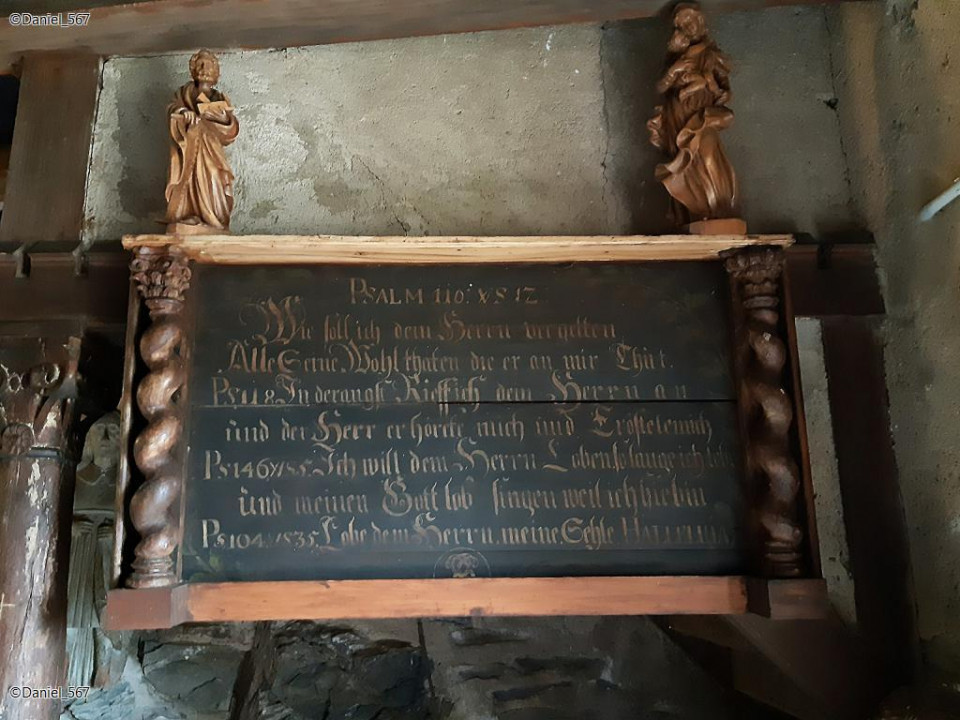 ©Daniel_567
PSALM 110: XS 12
Wie soll ich dem Herrn vergelten
Alle Seine Wohlthaten die er an mir Thut.
PS 118. In der angst Rieff ich dem Herrn an
und der Herr erhörte mich und Tröstete mich
PS 146 XS 5. Ich will dem Herrn Loben so lange ich lebe
und meinen Gott lob singen weil ich hie bin
PS 104 XS 35, Lobe dem Herrn, meine, Sehle HALLELUIA
©Daniel_567